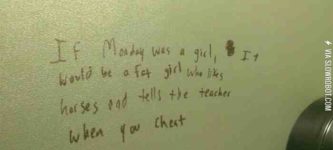 If Monday was a girl, It
would be a fat girl who likes
horses and tells the teacher
when you cheat
VIA SLOWROBOT.COM